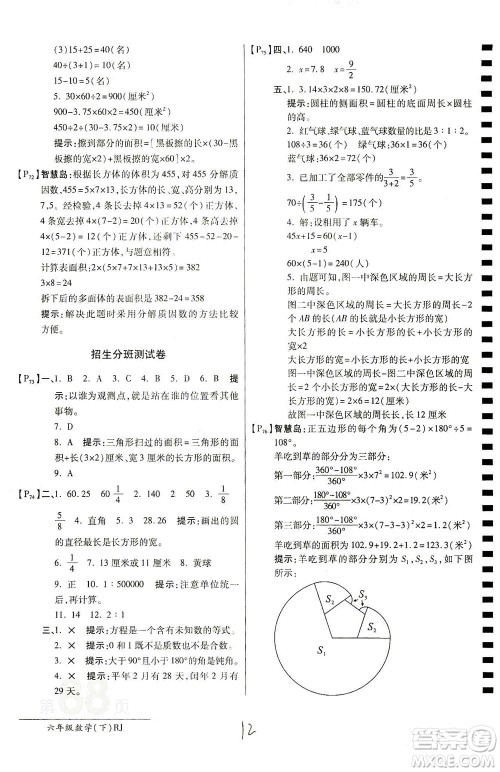 (3)15+25=40(名)
40÷(3+1)=10(名)
15-10=5(名)
5. 30×60÷2=900(厘米²)
900-3.75×10×2=825(厘米²)
900-3.75×10×(2-1)
提示:擦到部分的面积=900-[(黑板
擦的面积×2)+黑板擦的宽×(5-4)×黑板
擦的长]。
[P₇₂]智慧岛:根据长方体的体积为 455,对 455 分解质
因数,455=5×7×13,长、宽、高分别可以是 13、
7、5。经检验,4 个角去掉 4×13=52(个)正方体,
4 条宽去掉 4×(5-2)=12(个)正方体,4 条高去掉
4×(7-2)=20(个)正方体,455-52-20-12=
371(个)正方体,与题意相符。
计算表面积:2×(7×13+5×7+13×5)=382
3×8=24
拆下后的多面体的表面积 382-24=358
提示:能够应用分解质因数的方法比较方
便。
招生分班测试卷
[P₇₃]一、1. B 2. A 3. D 4. C 5. B 6. D 提
示:以谁为观测点,就是站在谁的位置看其他
事物。
7. D
8. A 提示:三角形扫过的面积=三角形的
面积+半圆的面积+长方形的面积。
[P₇₄]二、1. 60.25 60 1/4 2. 25 40 3. 1/8
5/8 4. 直角 5. 3 28.26 提示:画出的圆的
直径最长是正方形的边长。
6. 1/4 7. 10 20 8. 黄球
9. 正 10. 1:500000 提示:注意单位统一。
11. 14 12. 2:1
三、1. × 提示:方程是含有未知数的等式。
2. × 提示:0 和 1 既不是质数也不是合数。
3. × 提示:大于 90°小于 180°的角是钝角。
4. × 提示:2020 年是闰年,闰年的 2 月有
29 天。
[P₇₅]四、1. 640 1000
2. x=7.8 x=9/2
五、1. 3.14×3×2×8=150.72(厘米²)
提示:圆柱的侧面积=圆柱的底面周长×圆柱
的高。
2. 红气球、绿气球、蓝气球数量的比是 3:1:2
108÷3=36(个)
绿气球:36×1=36(个)
蓝气球:36×2=72(个)
3. 已加工的占全部零件的3/(3+2)=3/5
70÷(3/5-1/5)=175(个)
4. 解:设租用了 x 辆车。
45x+15=60(x-1)
x=5
60×(5-1)=240(人)
5. 由题可知,图一中深色区域的周长=大长
方形的周长
图二中深色区域的周长=大长方形的周长-
2AB (AB 的长=大长方形的宽-小长方形
的宽)
大长方形的长=小长方形的长+小长方形的
宽×2=小长方形的宽×4
图一中深色区域的周长-图二中深色区域的
周长=2×6=12(厘米)
故图一中深色区域的周长大,大 12 厘米。
[P₇₆]智慧岛:正五边形的每个角为(5-2)×180°÷5
=108°。
羊吃到草的部分分为三部分:
第一部分:(360°-108°)/360°×3×7²=102.9(米²)
第二部分:(180°-108°)/360°×3×(7-3)²=9.6(米²)
第三部分:(180°-108°)/360°×3×(7-3-3)²=0.6(米²)
羊吃到草的部分为 102.9+19.2+0.6=122.7(米²)
提示:羊吃到草的部分如图中 S₁、S₂、S₃所示。
S₃
S₂
S₁
六年级数学(下)RJ
12